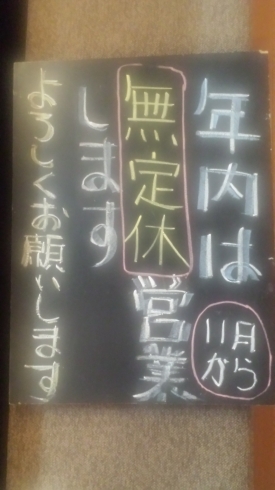 年内は
11月から
無定休営業
します
よろしくお願いします